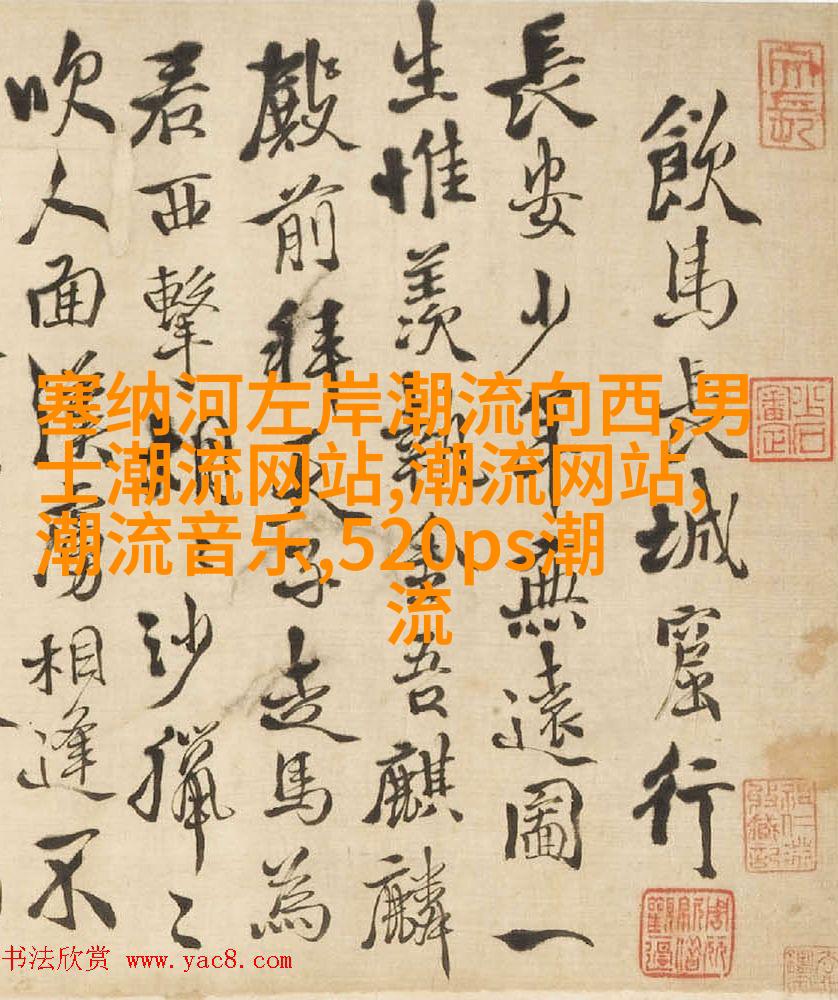 飲馬長城窟行
長安少年無遠圖一
生惟羨執金吾麒麟
殿前拜天子走馬為
君西擊胡〻沙獵〻
吹人面漢虜相逢不
塞纳河左岸潮流向西,男
士潮流网站,潮流网站,
潮流音乐,520ps潮
流
书法欣赏 www.yac8.com